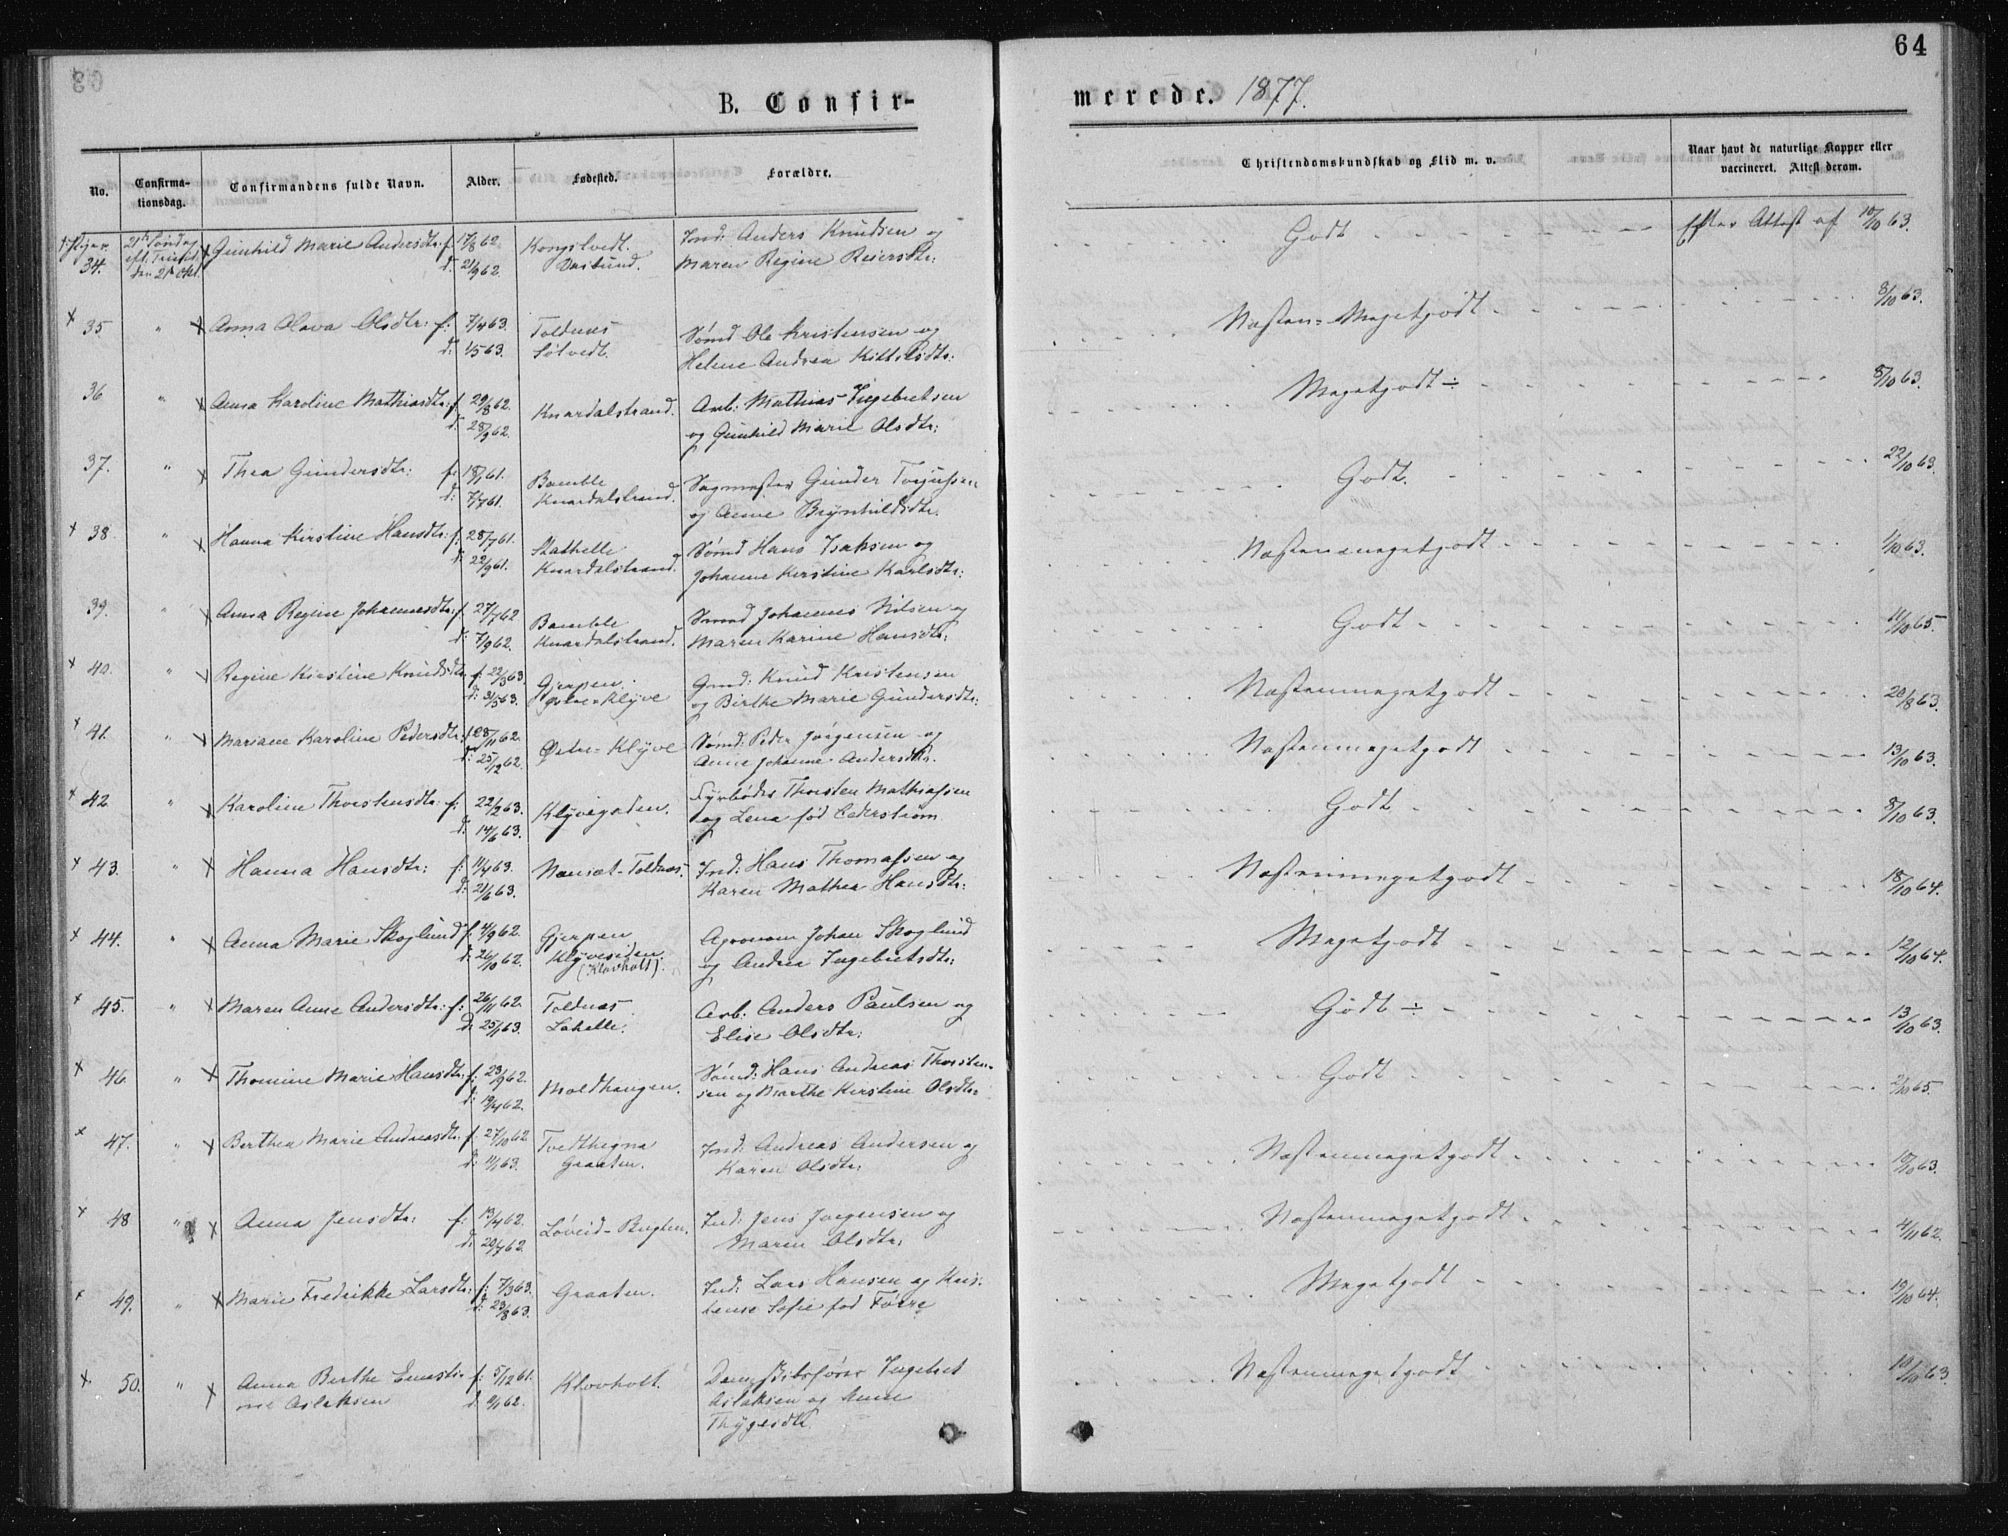 64
B. Confir-
merede. 1877.
No.
Confirma-
tionsdag.
Confirmandens fulde Navn.
Alder.
Fødested.
Forældre.
Christendomskundskab og Flid m. v.
Naar havt de naturlige Kopper eller
vaccineret. Attest derom.
34. 21de Søndag eft. Trinit. den 21de Okt. Gunhild Marie Andersdtr: f: 17/8 62. Kongstvedt. Ind: Anders Knudsen og Godt Efter Attest af 10/10 63.
d: 21/9 62. Maren Regine Reiersdtr:
35 " Anna Olava Olsdtr: f: 7/4 63. Toldnæs Sømd Ole Kristensen og Næsten-Megetgodt 8/10 63.
d: 1/5 63. Sølvedt. Helene Andrea Kittilsdtr:
36 " Anna Karoline Mathiasdtr: f. 29/8 62. Knardalstrand. Arb: Mathias Ingebretsen Megetgodt ÷ 8/10 63.
d: 28/9 62. og Gunhild Marie Olsdtr:
37. " Thea Gundersdtr: f: 18/1 61. Bamble Sagmester Gunder Godt. 22/10 63.
d: 7/7 61. Knardalstrand. og Anne Brynhildsdtr.
38. " Hanna Kirstine Hansdtr: f: 28/7 61. Stathelle Sømd Hans Isaksen og Næstenmegetgodt 1/10 63.
d: 22/9 61. Knardalstrand. Johanne Kirstine Karlsdtr:
39. " Anna Regine Johannesdtr: f. 27/7 62 Bamble Sømd Johannes Nilsen og Godt 11/10 65.
d: 7/9 62. Knardalstrand. Maren Karine Hansdtr:
40. " Regine Kirstine Knudsdtr: f: 22/3 63. Gjerpen. Gmd: Knud Kristensen Næstenmegetgodt 20/8 63.
d: 31/5 63. Øvre-Klyve og Birthe Marie Gundersdtr:
41. " Mariane Karoline Pedersdtr: f. 28/11 62. Østre-Klyve Sømd: Peder Jørgensen og Næstenmegetgodt 13/10 63.
d: 25/12 62. Anne Johanne Andersdtr.
42 " Karoline Thorstensdtr: f: 22/2 63. Klyvegaden. Fyrbøder Thorsten Mathiassen Godt 8/10 63.
d: 14/6 63. og Lena fød Cederstrøm
43. " Hanna Hansdtr: f: 11/4 63. Nenset-Toldnæs. Ind: Hans Thomassen og Næstenmegetgodt 18/10 64.
d: 21/6 63. Karen Mathea Hansdtr:
44. " Anna Marie Skoglund f: 4/9 62. Gjerpen Agronom Johan Skoglund Megetgodt 12/10 64.
d: 26/10 62. Klyvesiden og Andrea Ingebretsdtr:
(Klovholt).
45. " Maren Anne Andersdtr: f: 26/11 62. Toldnæs Arb: Anders Paulsen og Godt ÷ 13/10 63.
d: 25/1 63. Lahelle. Elise Olsdtr:
46. " Thomine Marie Hansdtr: f: 23/9 62. Moldhaugen. Sømd: Hans Andreas Thorsten- Godt 2/10 65.
sen og Marthe Kirstine Olsdtr:
47. " Berthea Marie Andreasdtr: f. 27/10 62 Tvedthegna Ind: Andreas Andersen og Næstenmegetgodt 10/10 63.
d: 1/1 63. Graaten. Karen Olsdtr:
48 " Anna Jensdtr: f: 13/4 62. Løveid-Bugten. Ind: Jens Jørgensen og Næstenmegetgodt 4/11 62.
d: 20/7 62. Maren Olsdtr:
49. " Marie Fredrikke Larsdtr: f: 7/3 63. Graaten. Ind: Lars Hansen og Kris- Megetgodt 19/10 64.
d: 23/8 63. tense Sofie fød Førre
50. " Anna Berthe Ernesti- f: 5/12 61. Klovholt. Dampskibsfører Ingebret Næstenmegetgodt 10/10 63.
ne Aslaksen Aslaksen og Anne
Thygesdtr